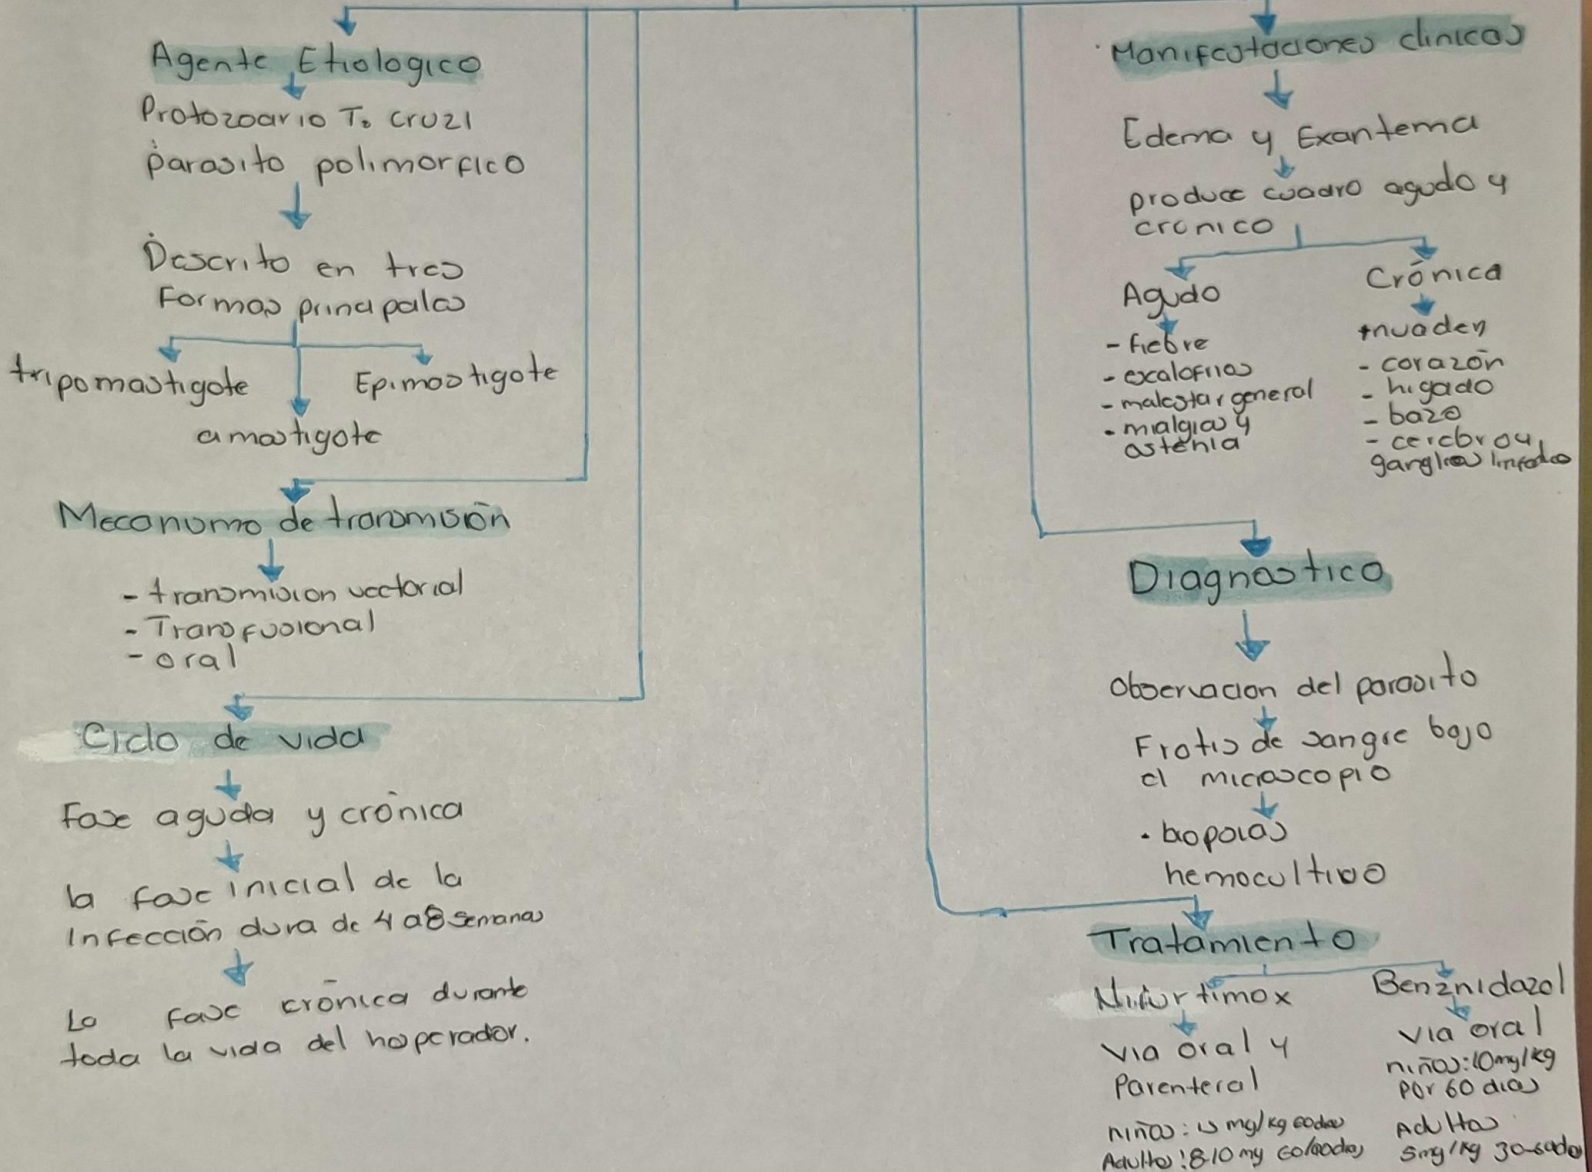 Agente Etiologico
Protozoario T. cruzi
parasito polimorfico
Descrito en tres
Formas principales
tripomastigote
Epimastigote
amastigote
Mecanismo de transmisión
- transmision vectorial
- Transfusional
- oral
Ciclo de vida
Fase aguda y crónica
la fase inicial de la
Infección dura de 4 a 8 semanas
La fase crónica durante
toda la vida del hosperador.
Manifestaciones clinicas
Edema y Exantema
produce cuadro agudo y
cronico
Agudo
- fiebre
- escalofrios
- malestar general
- mialgias y
astenia
Crónica
invaden
- corazón
- higado
- bazo
- cerebro y
ganglios linfados
Diagnostico
Observacion del parasito
Frotis de sangre bajo
el microscopio
- biopsias
hemocultivo
Tratamiento
Nifurtimox
via oral y
Parenteral
niños: 15 mg/kg
Adultos: 8-10 mg
Benznidazol
via oral
niños: 10mg/kg
por 60 dias
Adultos
5mg/kg